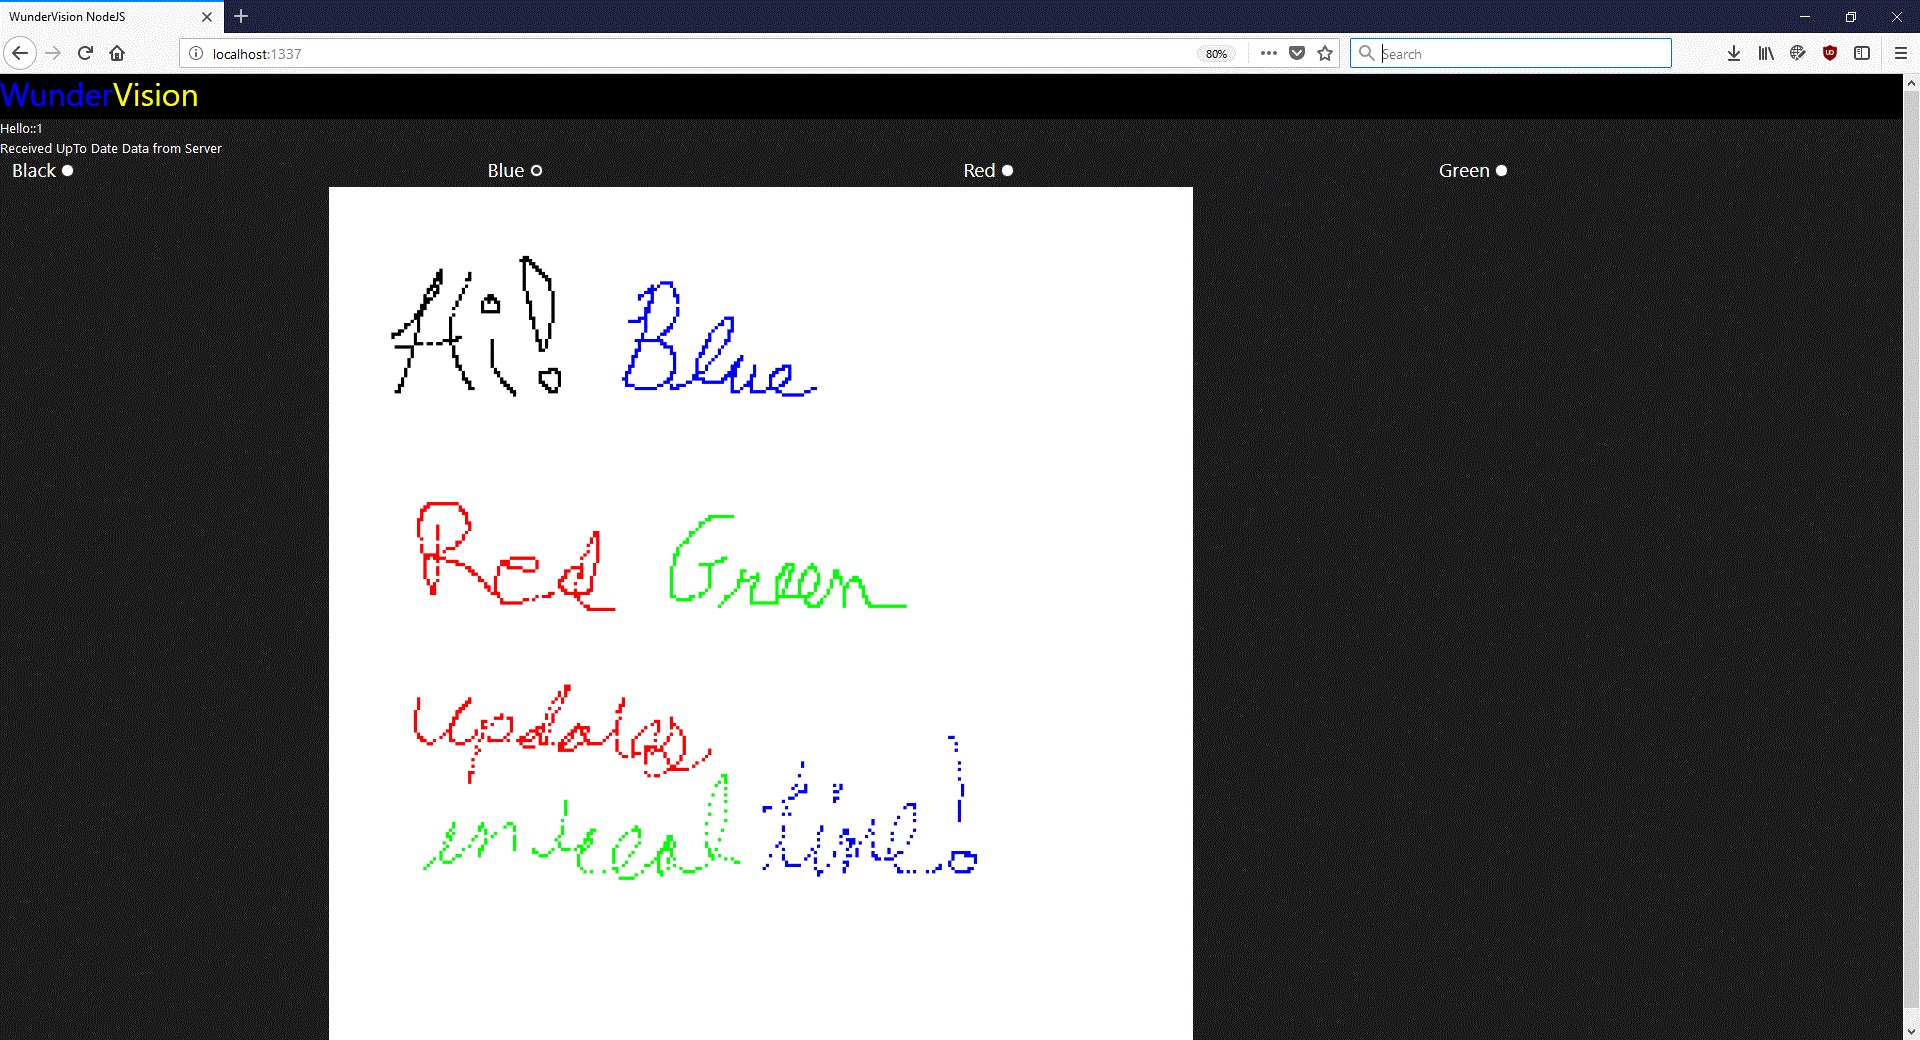 WunderVision NodeJS
localhost:1337 80% Search
WunderVision
Hello::1
Received UpTo Date Data from Server
Black Blue Red Green
Hi! Blue
Red Green
Updates
in real time!